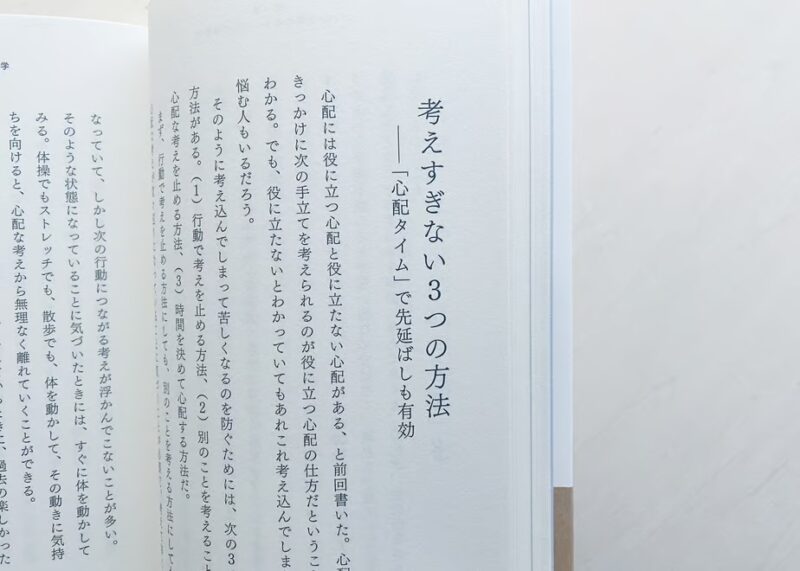 考えすぎない3つの方法
――「心配タイム」で先延ばしも有効
心配には役に立つ心配と役に立たない心配がある、と前回書いた。心配
きっかけに次の手立てを考えられるのが役に立つ心配の仕方だというこ
わかる。でも、役に立たないとわかっていてもあれこれ考え込んでしま
悩む人もいるだろう。
そのように考え込んでしまって苦しくなるのを防ぐためには、次の3
方法がある。(1)行動で考えを止める方法、(2)別のことを考えること
心配な考えを止める方法、(3)時間を決めて心配する方法だ。
まず、行動で考えを止める方法にしても、別のことを考える方法にして
学
なっていて、しかし次の行動につながる考えが浮かんでこないことが多い。
そのような状態になっていることに気づいたときには、すぐに体を動かして
みる。体操でもストレッチでも、散歩でも、体を動かして、その動きに気持
ちを向けると、心配な考えから無理なく離れていくことができる。
過去の楽しかった